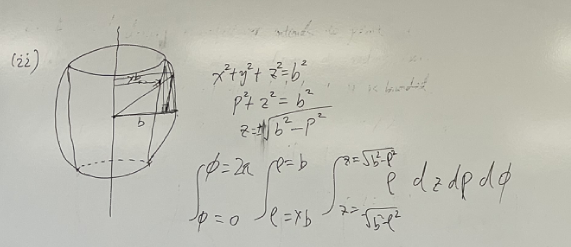 (ii)
xb
b
x²+y²+z²=b²
ρ²+z²=b²
z=±√b²-ρ²
∫ϕ=0^ϕ=2π ∫ρ=xb^ρ=b ∫z=√b²-ρ²^z=√b²-ρ² ρ dz dρ dϕ